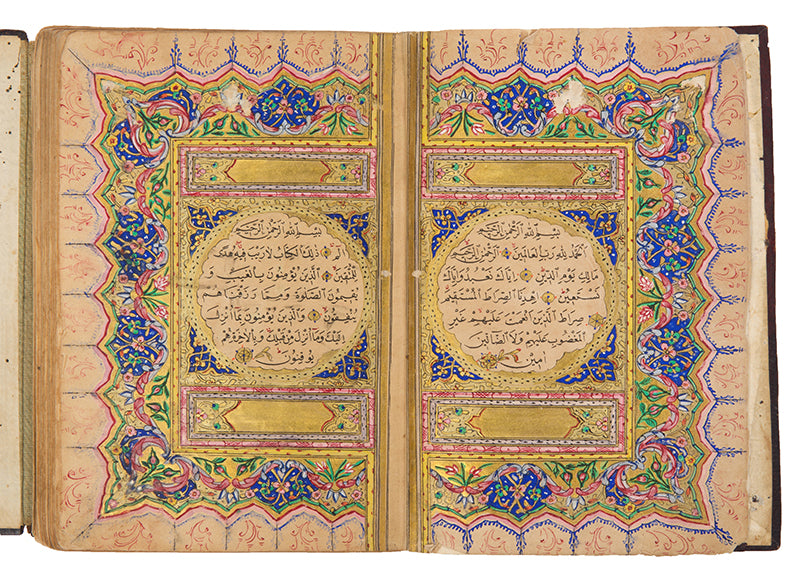 بسم الله الرحمن الرحيم
الحمد لله رب العالمين الرحمن الرحيم
مالك يوم الدين اياك نعبد واياك
نستعين اهدنا الصراط المستقيم
صراط الذين انعمت عليهم غير
المغضوب عليهم ولا الضالين
امين
بسم الله الرحمن الرحيم
الم ذلك الكتاب لا ريب فيه هدى
للمتقين الذين يؤمنون بالغيب و
يقيمون الصلوة ومما رزقناهم
ينفقون والذين يؤمنون بما انزل
اليك وما انزل من قبلك وبالاخرة هم
يوقنون